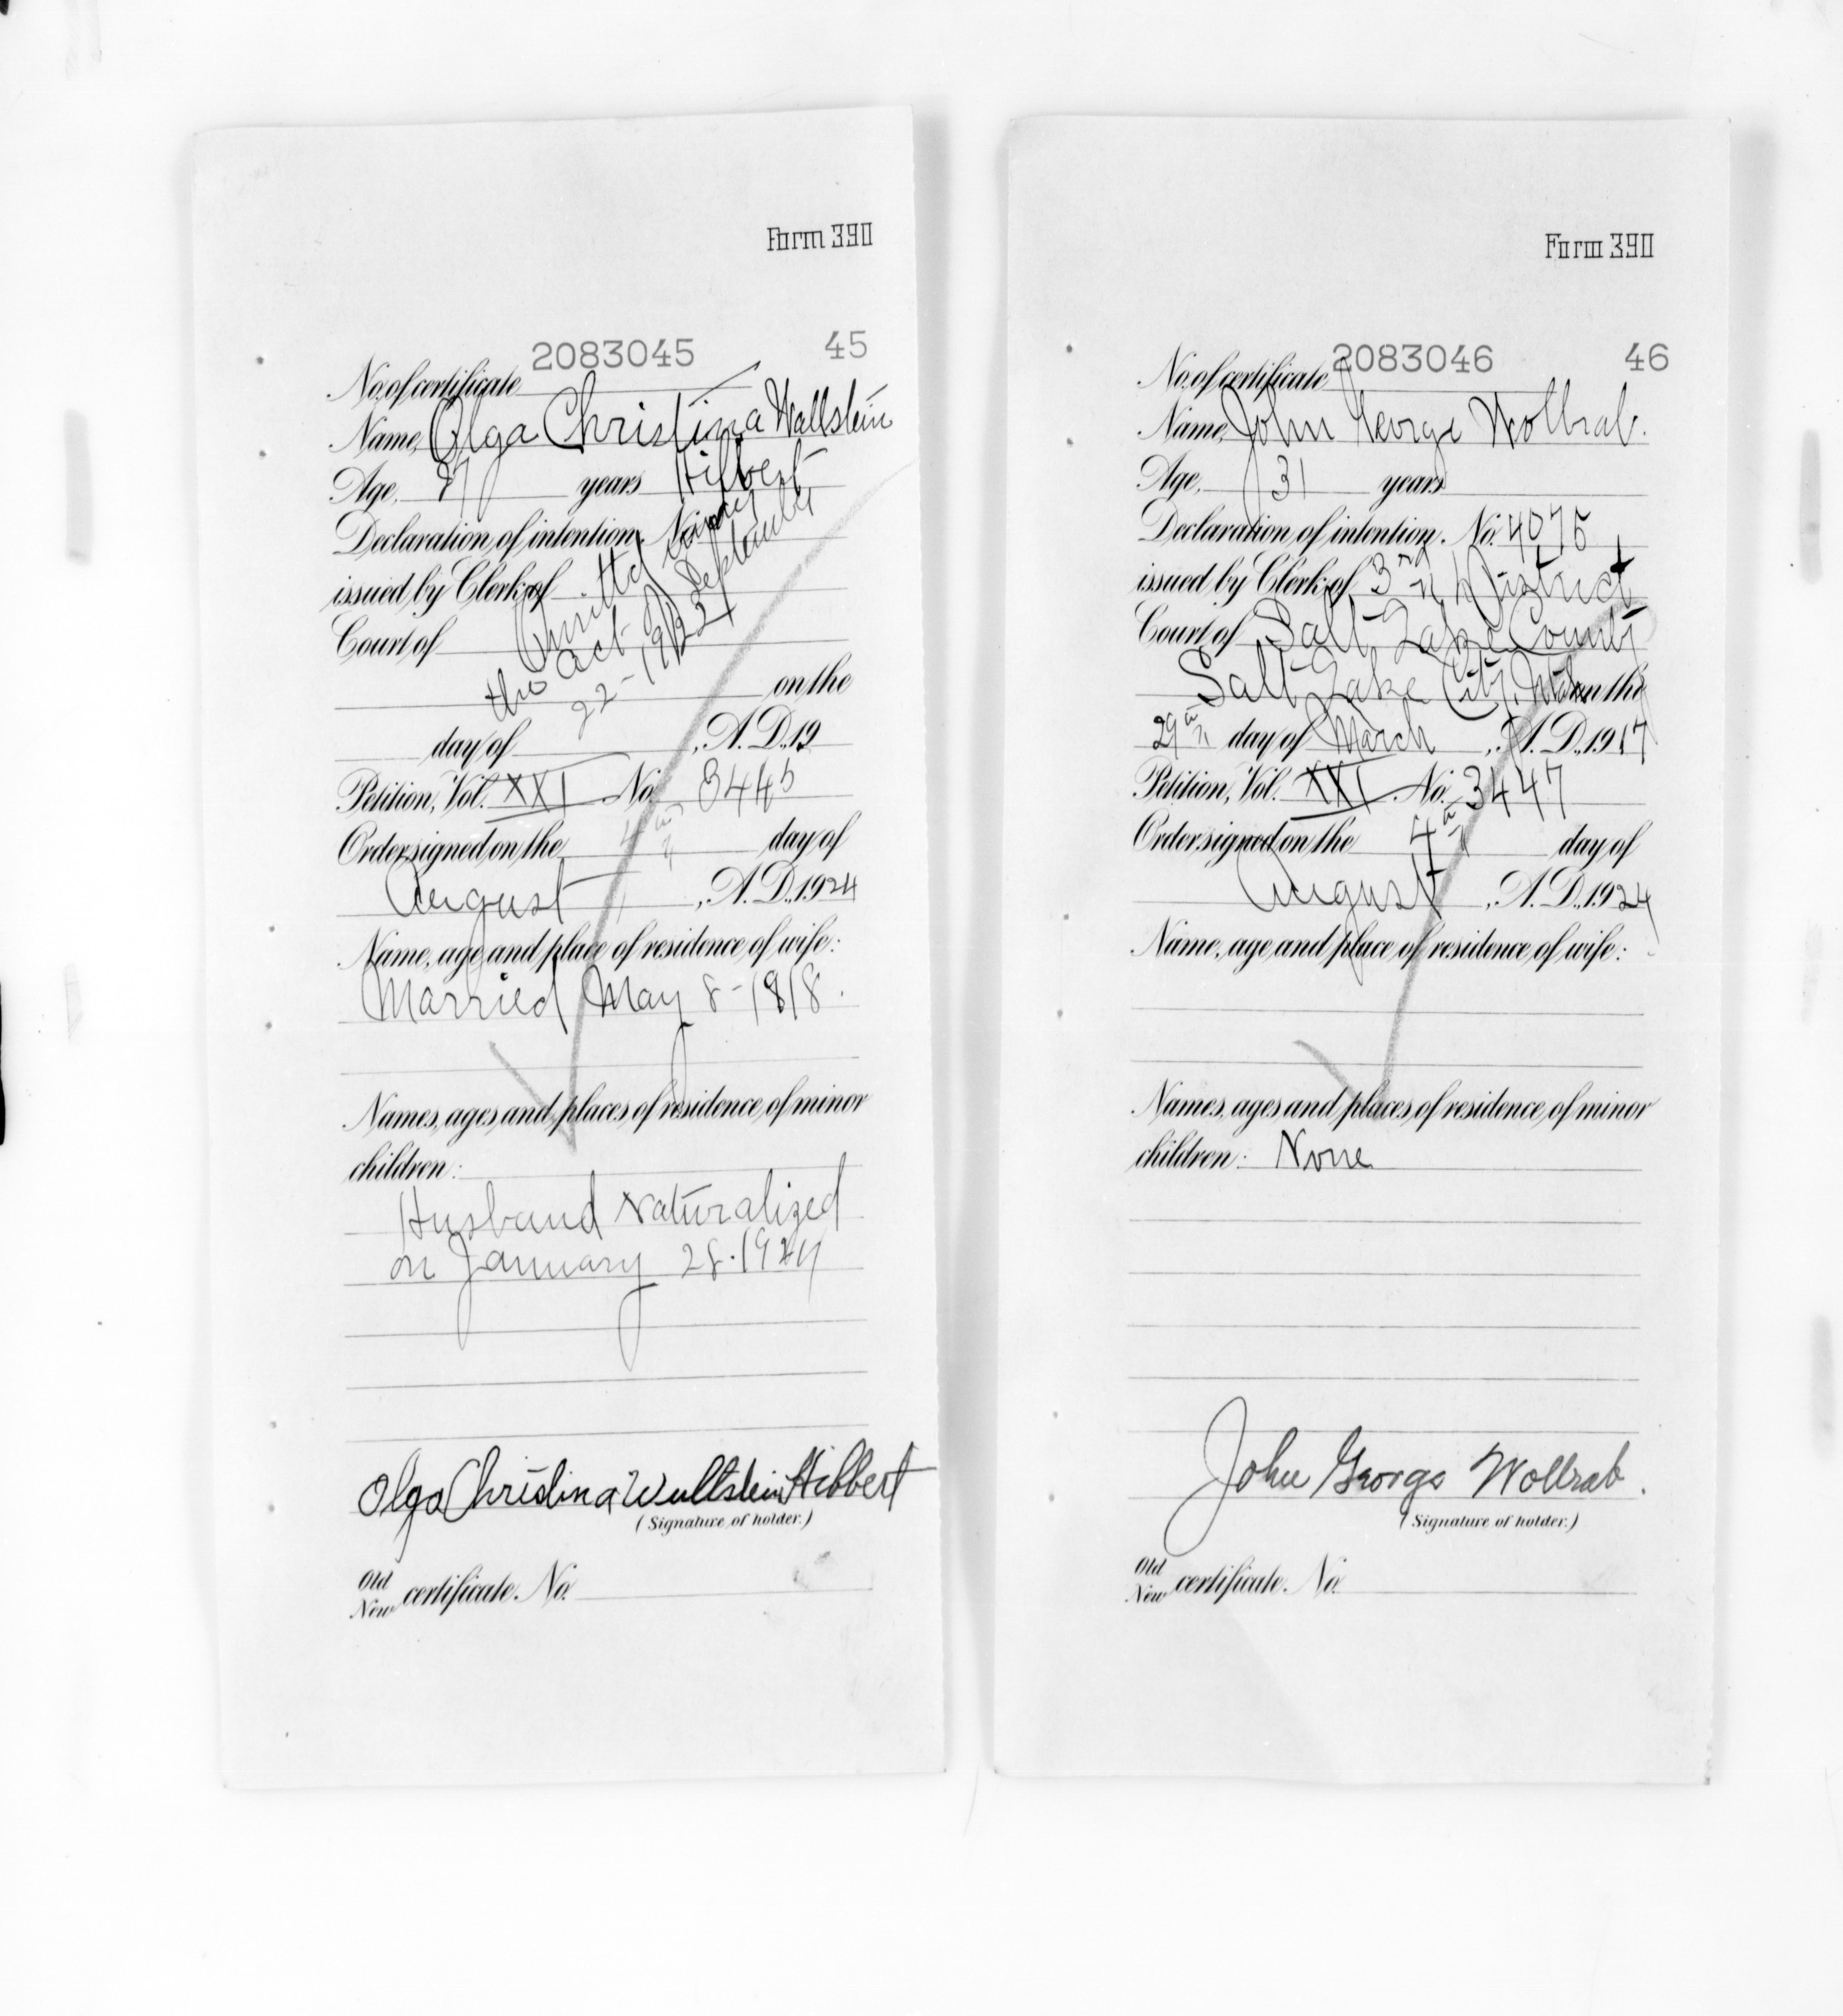 Form 390
2083045 45
No. of certificate
Name, Olga Christina Wallstein
Age, 27 years Hilbert
Declaration of intention, No.
issued by Clerk of
Court of
Omitted
the act of September
22-1922
on the
day of , A.D. 19
Petition, Vol. XXI No. 3445
Order signed on the 4th day of
August , A.D. 1924
Name, age and place of residence of wife:
Married May 8-1918.
Names, ages and places of residence of minor
children:
Husband Naturalized
on January 28.1924
Olga Christina Wullstein Hibbert
(Signature of holder.)
Old
New certificate. No.
Form 390
2083046 46
No. of certificate
Name, John George Wollrab.
Age, 31 years
Declaration of intention. No. 4075
issued by Clerk of 3rd District
Court of Salt Lake County
Salt Lake City, Utah on the
29th day of March , A.D. 1917
Petition, Vol. XXI No. 3447
Order signed on the 4th day of
August , A.D. 1924
Name, age and place of residence of wife:
Names, ages and places of residence of minor
children: None
John George Wollrab.
(Signature of holder.)
Old
New certificate. No.